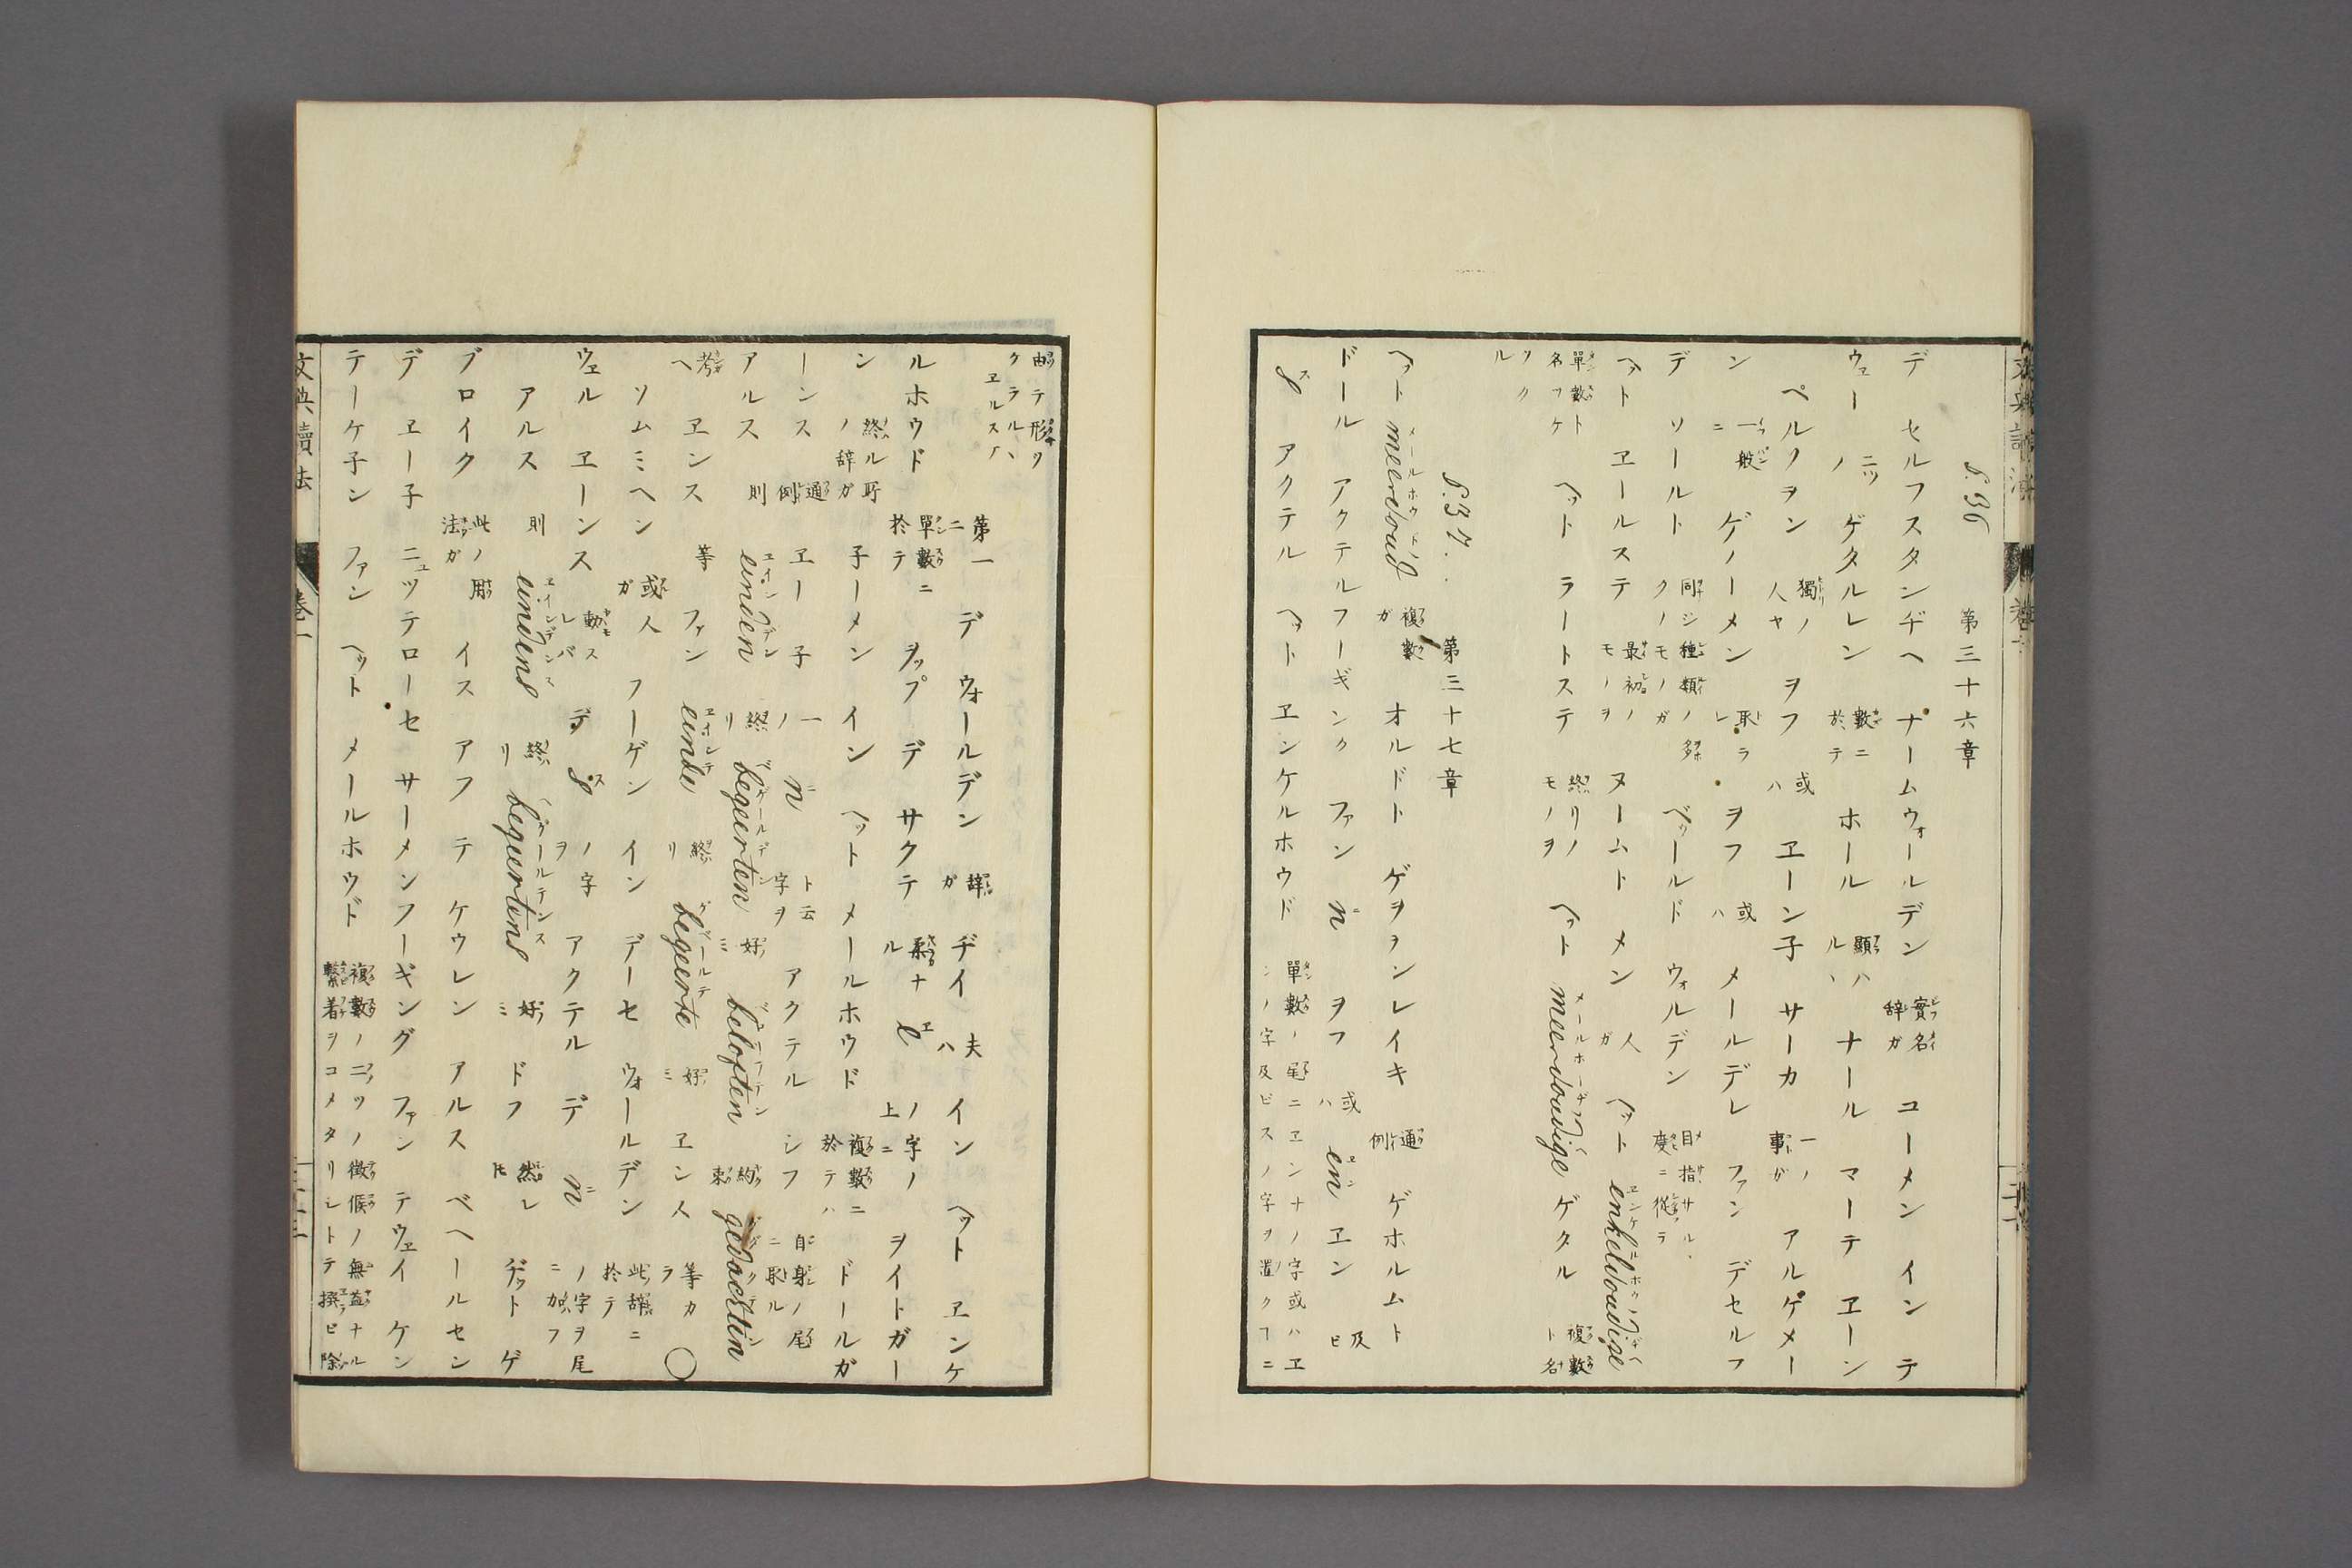 §.36 第三十六章
デ セルフスタンヂヘ ナームウォールデン 實名辞ガ コーメン インテ
ウェー 二ツノ ゲタルレン 數ニ於テ ホール 顯ハルヽ ナール マーテ ヱーン
ペルソヲン 獨ノ人ヤ ヲフ 或ハ ヱーン子 サーカ 一ノ事ガ アルゲメー
ン 一般ニ ゲノーメン 取ラレ ヲフ 或ハ メールデレ ファン デセルフ
デ ソールト 同ジクノ種類ノモノガ多 ベッールド ウォルデン 目指サルヽ度ニ從テ
ヘット ヱールステ 最初ノモノヲ ヌームト メン 人ガ ヘット enkelvoudige
單數ト名ヅク ヘット ラートステ 終リノモノヲ ヘット meervoudige ゲタル 複數ト名
ヅクル
§.37. 第三十七章
ヘット meervoud 複數ガ オルドト ゲヲヲンレイキ 通例 ゲホルムト
ドール アクテルフーギンク ファン n ヲフ 或ハ en ヱン 及ビ
s アクテル ヘット ヱンケルホウド 單數ノ尾ニヱンナノ字或ハヱンノ字及ビスノ字ヲ置クフニ
由テ形ヅクラルヽ
ヱルスタ 第一ニ デ ウォールデン 辞ガ ヂイ 夫ハ イン ヘット ヱンケ
ルホウド 單數ニ於テ ヲップ デ サクテ 柔ナル e ノ字ノ上ニ ヲイトガー
ン 終ル所ノ辞ガ 子ーメン イン ヘット メールホウド 複數ニ於テハ ドールガ
ーンス 通例 ヱー子 一ノ n ト云字ヲ アクテル シフ 自身ノ尾ニ取ル
アルス 則 einden 終リ begeerten 好ミ beloften 約束 gedachten
考ヘ ヱンス 等 ファン einde 終リ begeerte 好ミ ヱンス 等カラ ○
ソムミヘン 或人ガ フーゲン イン デーセ ウォールデン 此ノ辞ニ於テ
ウェル ヱーンス 動モスレバ デ s ノ字ヲ アクテル デ n ノ字ヲ尾ニ加フ
アルス 則 eindens 終リ begeertens 好ミ ドフ 然レ𪜈 ヂット ゲ
ブロイク 此ノ用法ガ イス アフ テ ケウレン アルス ベヘールセン
デ ヱー子 ニュッテローセ サーメンフーギング ファン テウェイ ケン
テーケ子ン ファン ヘット メールホウド 複數ノ二ツノ徴候ノ無益ナル繋着ヲコメタリシトテ撰ビ除